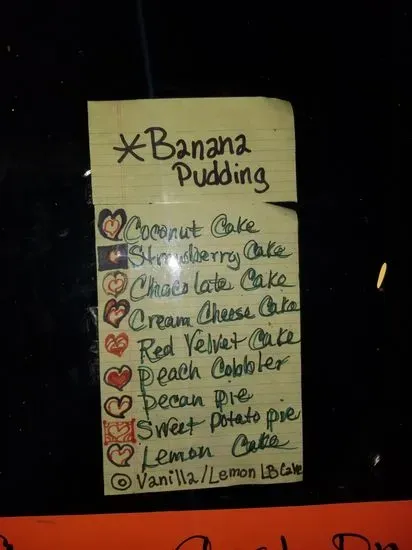 *Banana
Pudding
Coconut Cake
Strawberry Cake
Chocolate Cake
Cream Cheese Cake
Red Velvet Cake
Peach Cobbler
Pecan Pie
Sweet Potato Pie
Lemon Cake
Vanilla/Lemon LB Cake